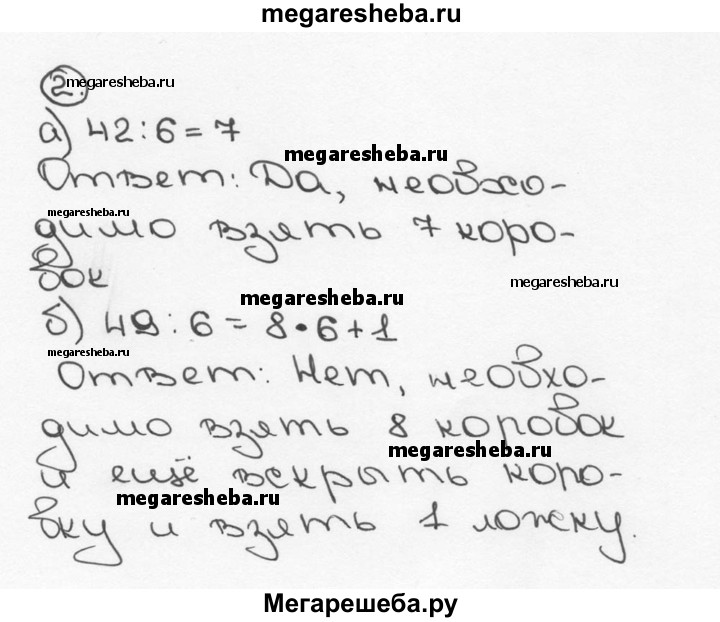 megaresheba.ru
2. megaresheba.ru
а) 42 : 6 = 7
megaresheba.ru
Ответ: Да, необхо-
megaresheba.ru
димо взять 7 коро-
бок
megaresheba.ru
megaresheba.ru
б) 49 : 6 = 8 • 6 + 1
megaresheba.ru
Ответ: Нет, необхо-
димо взять 8 коробок
megaresheba.ru
и ещё вскрыть коро-
megaresheba.ru
бку и взять 1 ложку.
Мегарешеба.ру